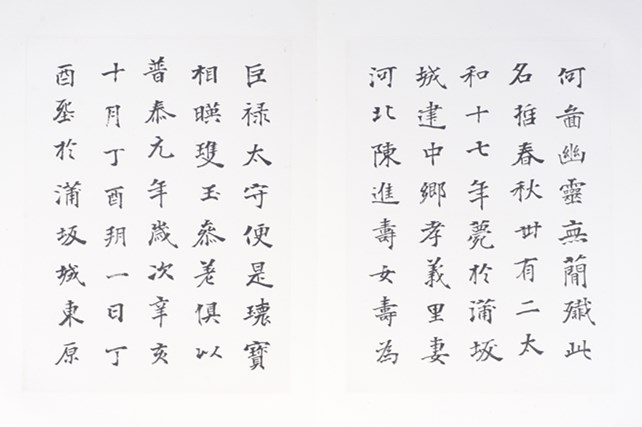 何啚幽靈無簡殲此
名哲春秋卅有二太
和十七年薨於蒲坂
城建中鄉孝義里妻
河北陳進壽女壽為
巨祿太守便是瓌寶
相暎瓊玉參差俱以
普泰元年歲次辛亥
十月丁酉朔一日丁
酉葬於蒲坂城東原